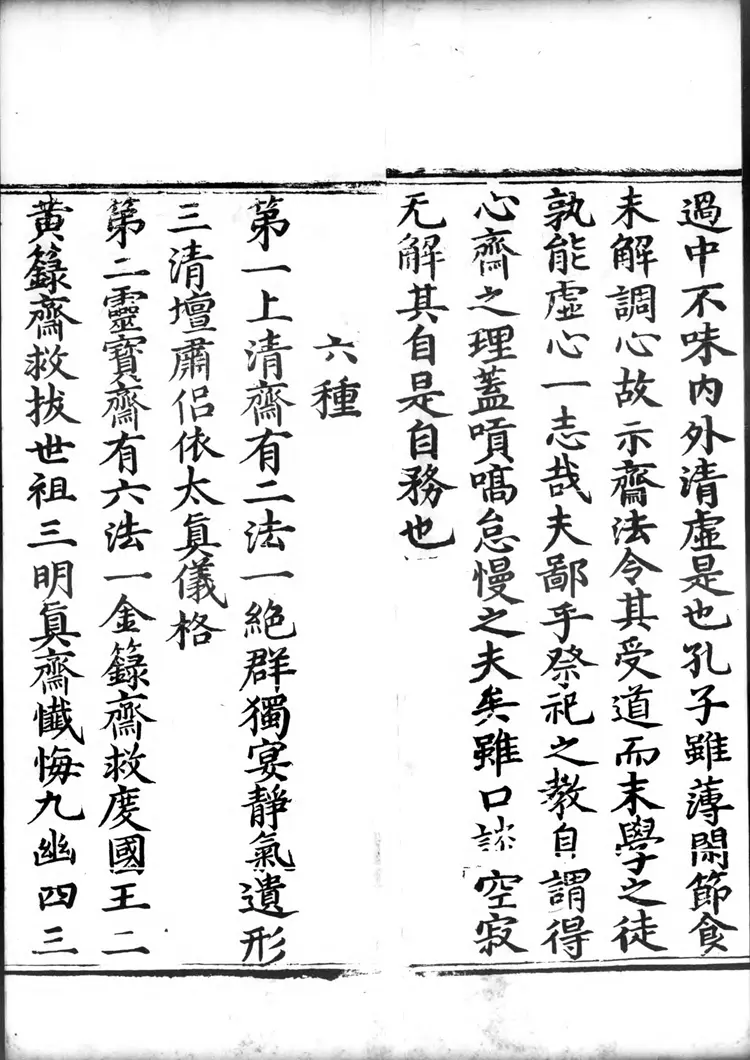 過中不味內外清虛是也孔子雖薄閑節食
未解調心故示齋法令其受道而末學之徒
孰能虛心一志哉夫鄙乎祭祀之教自謂得
心齋之理蓋嗊嗃怠慢之夫矣雖口談空寂
无解其自是自務也
六種
第一上清齋有二法一絕群獨宴靜氣遺形
三清壇肅侶依太眞儀格
第二靈寶齋有六法一金籙齋救度國王二
黃籙齋救拔世祖三明眞齋懺悔九幽四三